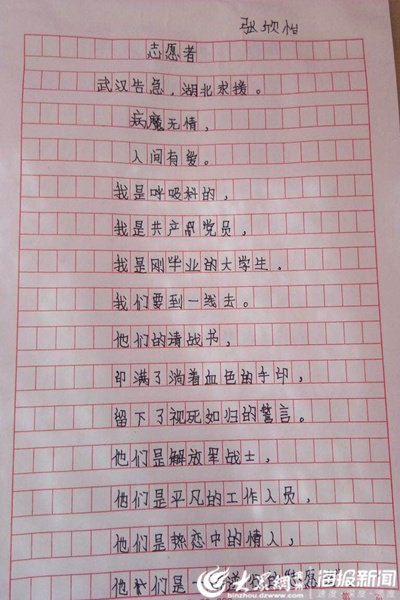 张欣怡
志愿者
武汉告急，湖北求援。
病魔无情，
人间有爱。
我是呼吸科的，
我是共产党党员，
我是刚毕业的大学生。
我们要到一线去。
他们的请战书，
印满了淌着血色的手印，
留下了视死如归的誓言。
他们是解放军战士，
他们是平凡的工作人员，
他们是热恋中的情人，
他们是一
愿
大众网 海报新闻